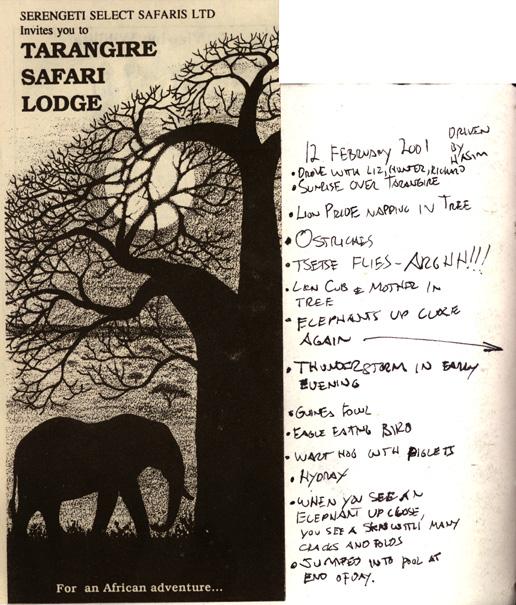 SERENGETI SELECT SAFARIS LTD
Invites you to
TARANGIRE
SAFARI
LODGE
For an African adventure...
12 FEBRUARY 2001
DRIVEN
BY
HASIM
• DROVE WITH LIZ, HUNTER, RICHARD
• SUNRISE OVER TARANGIRE
• LION PRIDE NAPPING IN TREE
• OSTRICHES
• TSETSE FLIES - ARGHH!!!
• LION CUB & MOTHER IN
TREE
• ELEPHANTS UP CLOSE
AGAIN
• THUNDERSTORM IN EARLY
EVENING
• GUINEA FOWL
• EAGLE EATING BIRD
• WART HOG WITH PIGLETS
• HYDRAX
• WHEN YOU SEE AN
ELEPHANT UP CLOSE,
YOU SEE A SKIN WITH MANY
CRACKS AND FOLDS
• JUMPED INTO POOL AT
END OF DAY.